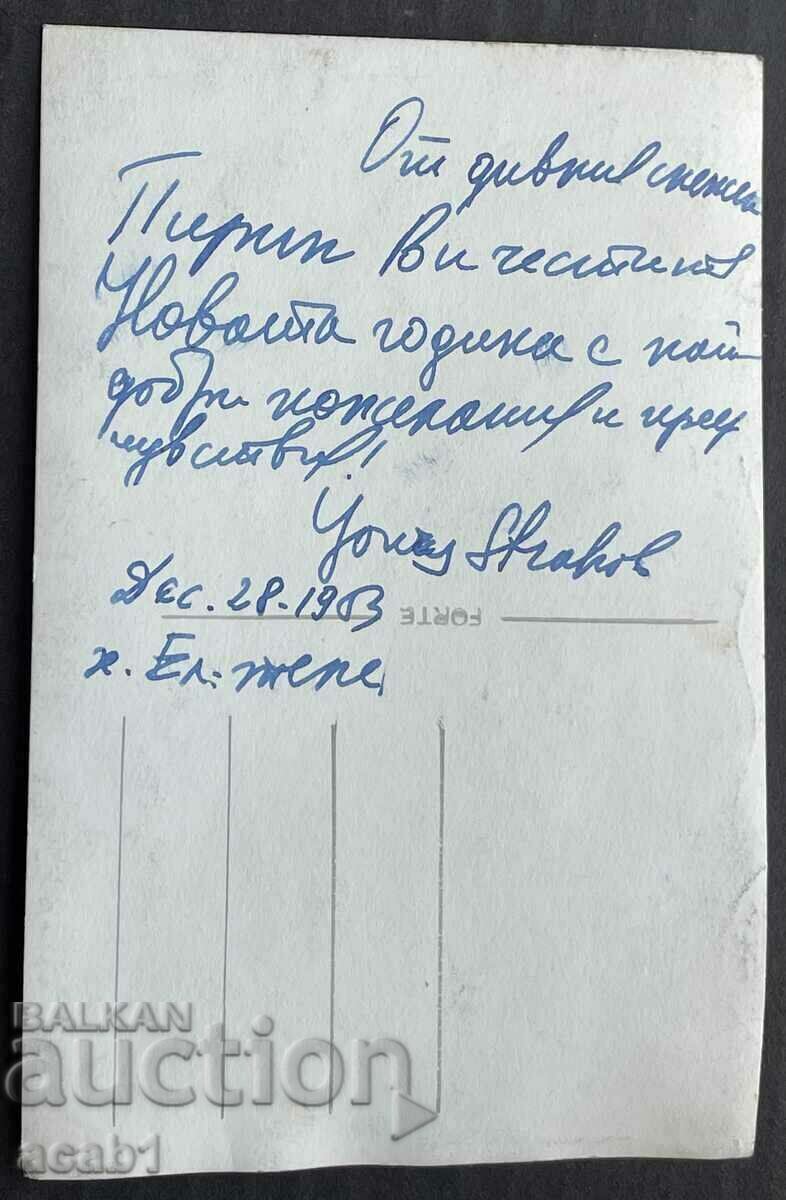 От дивния снежен
Пирин Ви честитя
Новата година с най-
добри пожелания и пред
чувствия!
Dec. 28-1963
х. Ел-тепе
FORTE
BALKAN
auction
acab1